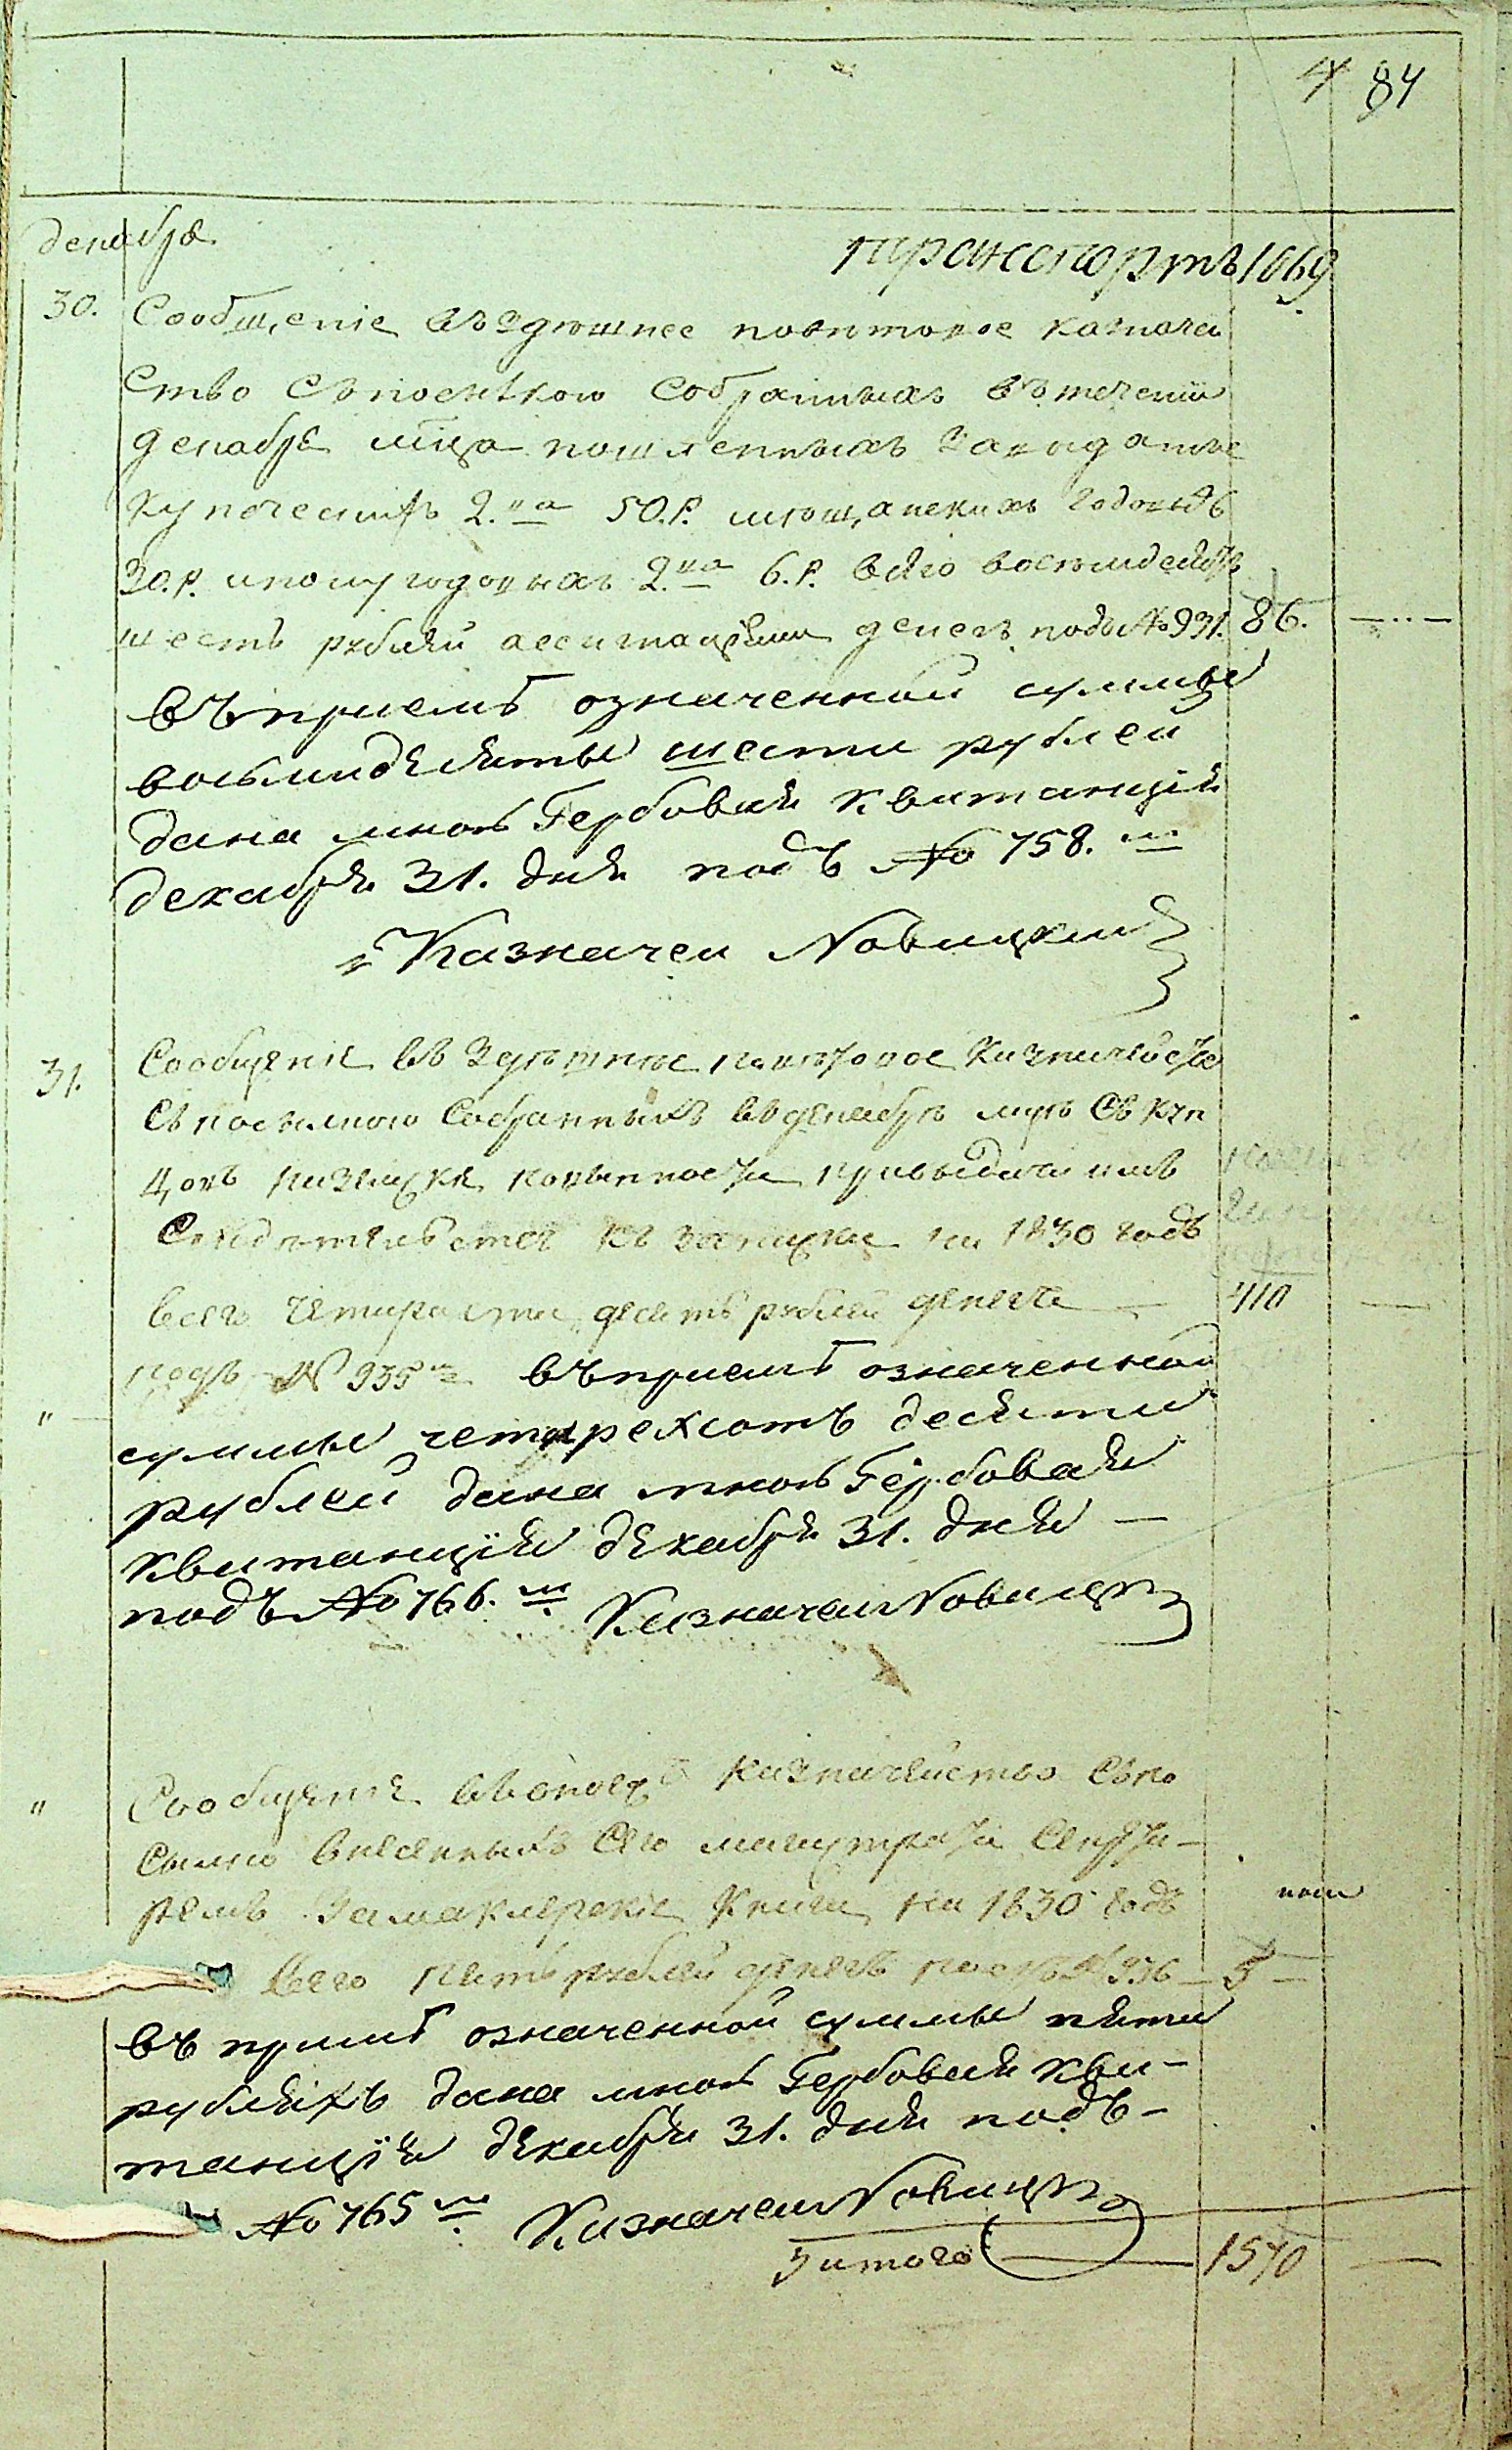 84
декабря
транспортъ 1069
30. Сообщеніе въ здешнее поветовое казначей
ство съ посылкою собранныхъ въ теченіи
декабря мца пошленныхъ за выдатые
купеческихъ 2. на 50. р. мещанскихъ годовыхъ
30. р. и полугодовыхъ 2. на 6. р. всего восемдесятъ
шесть рублей ассигнаціями денегъ подъ № 931. 86.
въ приемѣ означенной суммы
восьмидесяты шести рублей
дана мною Гербовая квитанція
декабря 31. дня подъ № 758. м
Казначей Новицкий
31. Сообщение въ здешнее поветовое Казначейство
съ посылкою собранныхъ въ декабре мце съ куп
цовъ повинности при выдачи имъ
свидетельства на 1830 годъ
всего четыреста десять рублей денегъ 410
подъ № 935 въ приемѣ означенной
суммы четырехсотъ десяти
рублей дана мною Гербовая
квитанція декабря 31. дня —
подъ № 766. м Казначей Новицкий
" Сообщение въ оное казначейство съ по
сылкою внесенныхъ сего магистрата секрета-
ремъ за маклерские книги на 1830 годъ
всего пять рублей денегъ подъ № 936 — 5 —
въ приемѣ означенной суммы пяти
рубляхъ дана мною Гербовая кви-
танція декабря 31. дня подъ -
№ 765 м Казначей Новицкий
итого — 1570 —